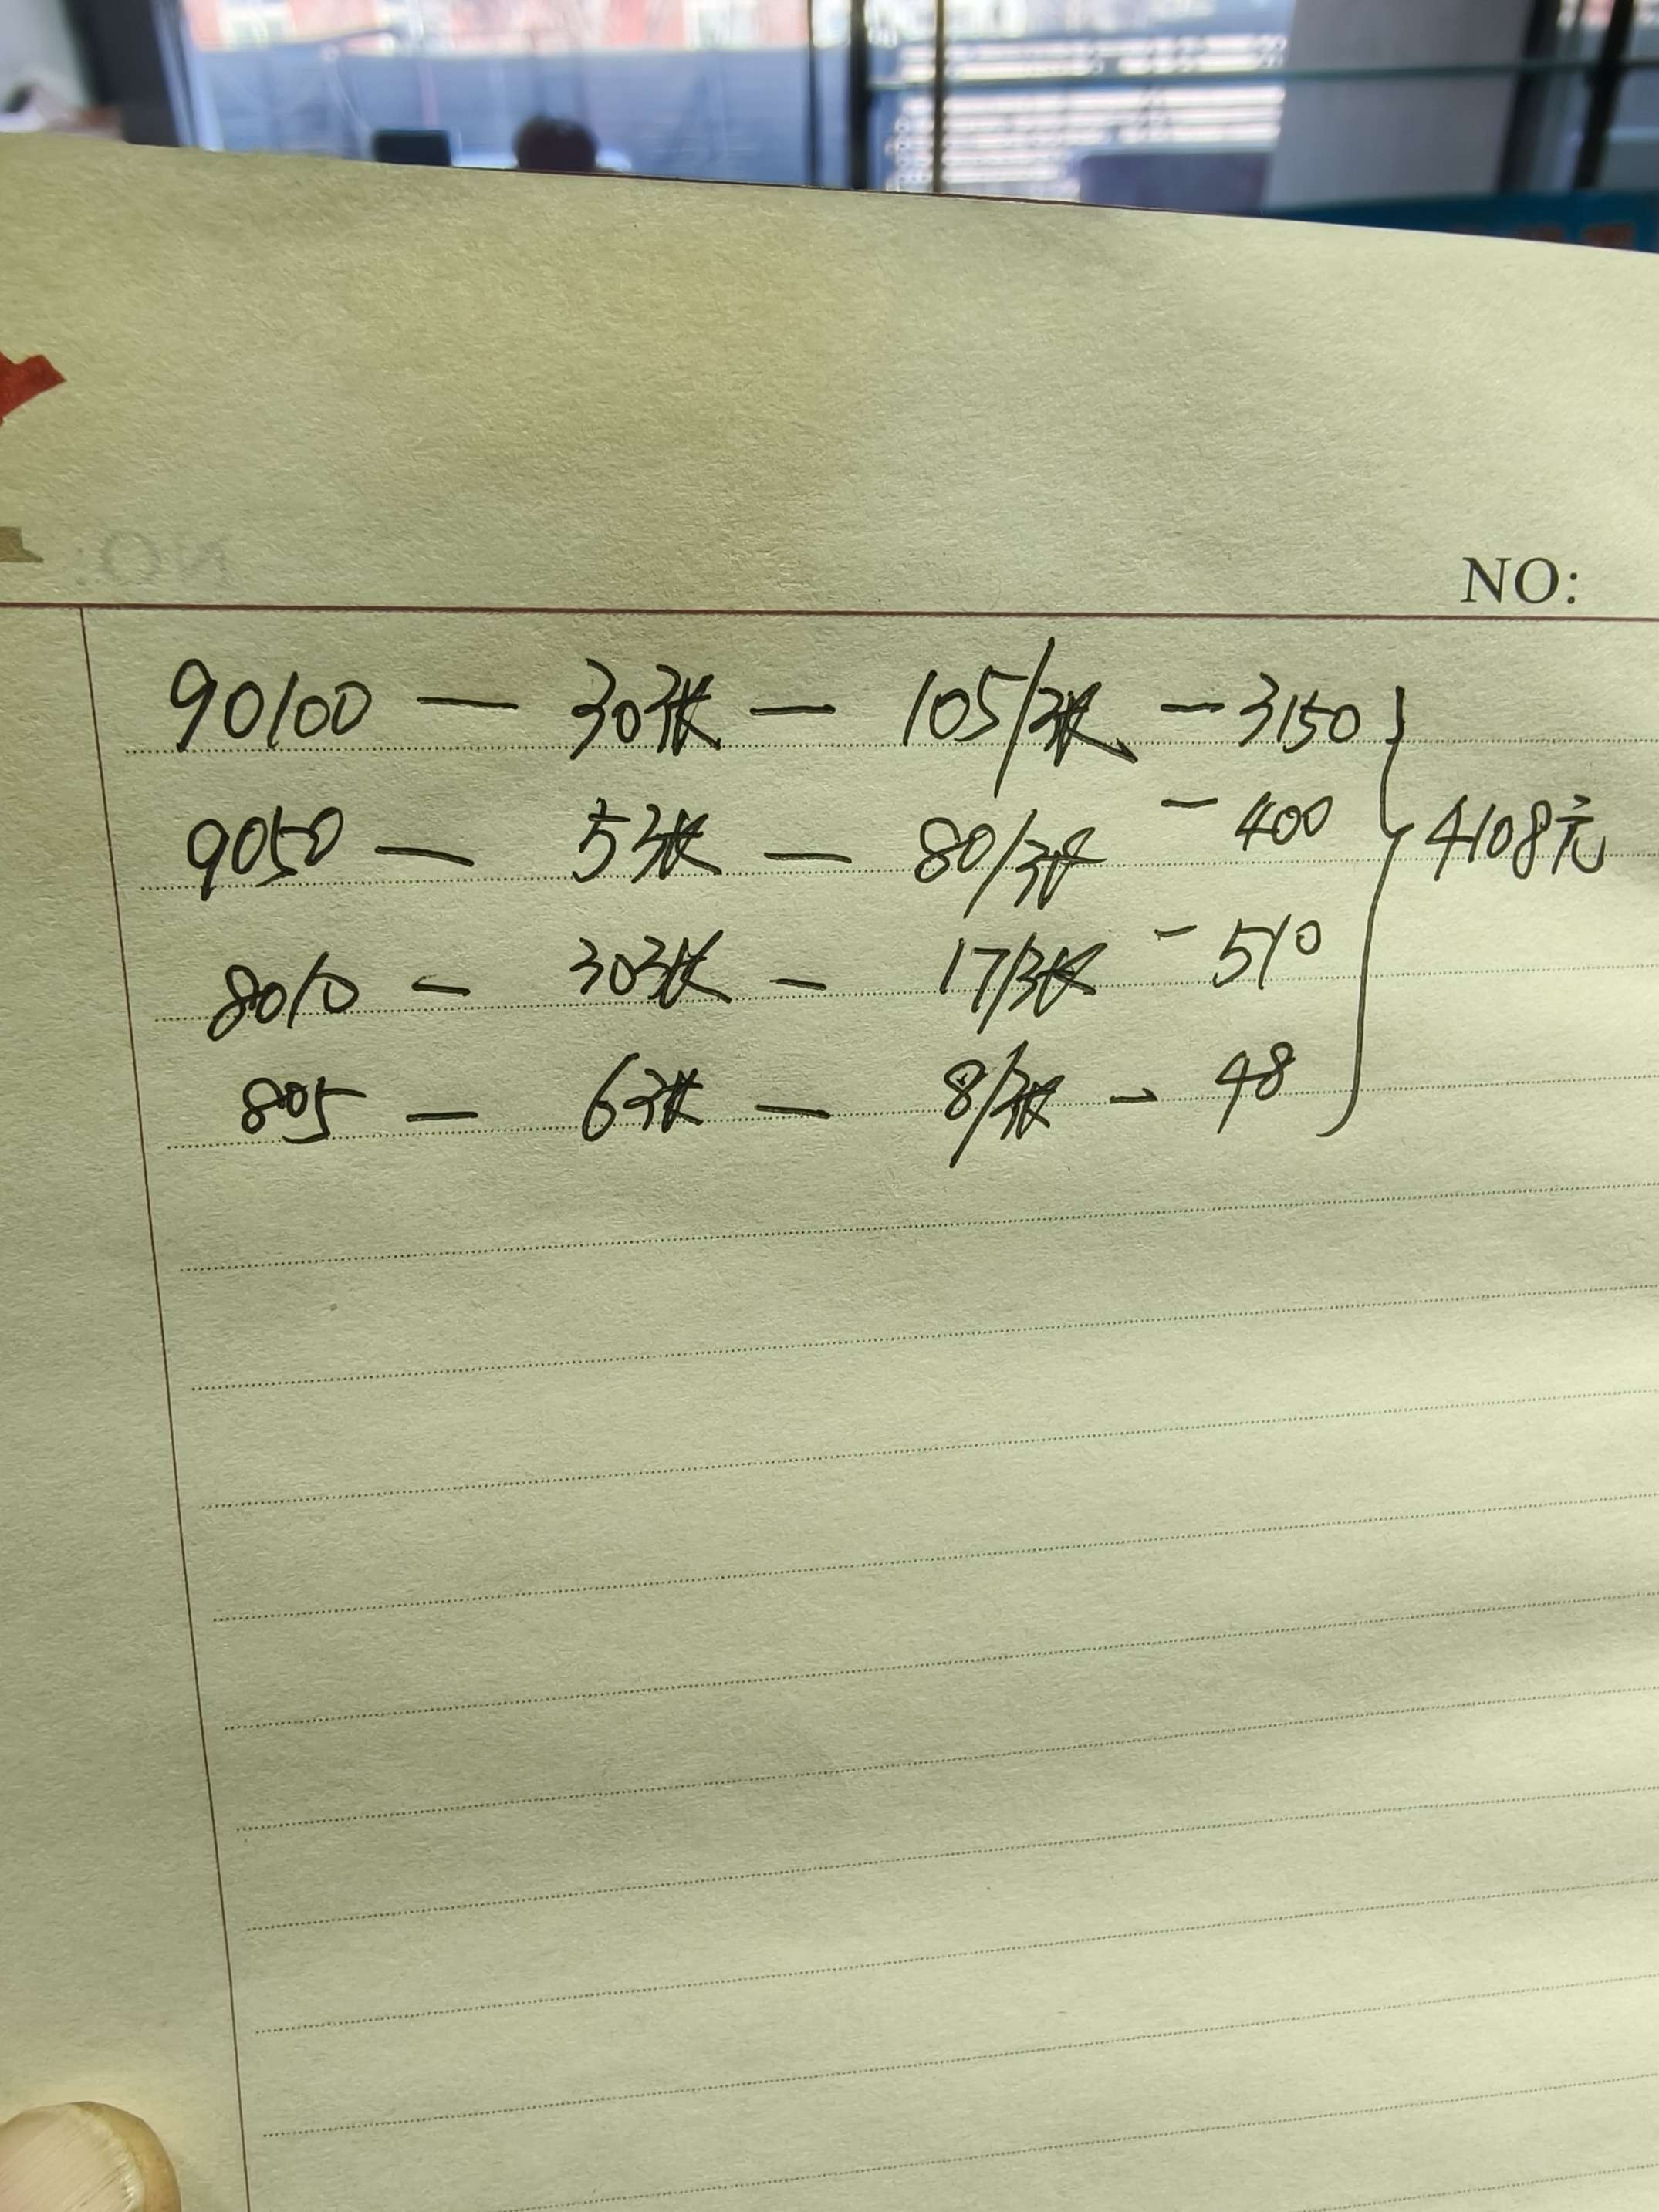 NO:
90100 — 30张 — 105/张 — 3150
9050 — 5张 — 80/张 — 400
4108元
8010 — 30张 — 17/张 — 510
805 — 6张 — 8/张 — 48